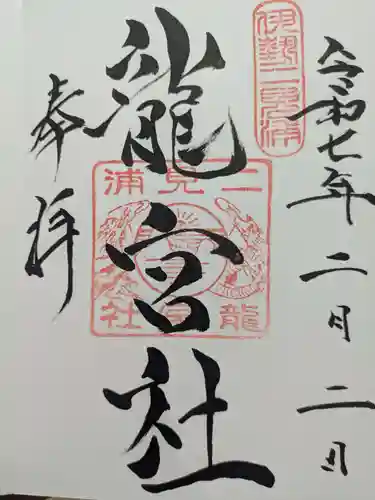 令和七年二月二日
伊勢二見浦
龍宮社
二見浦
龍宮社
奉拝